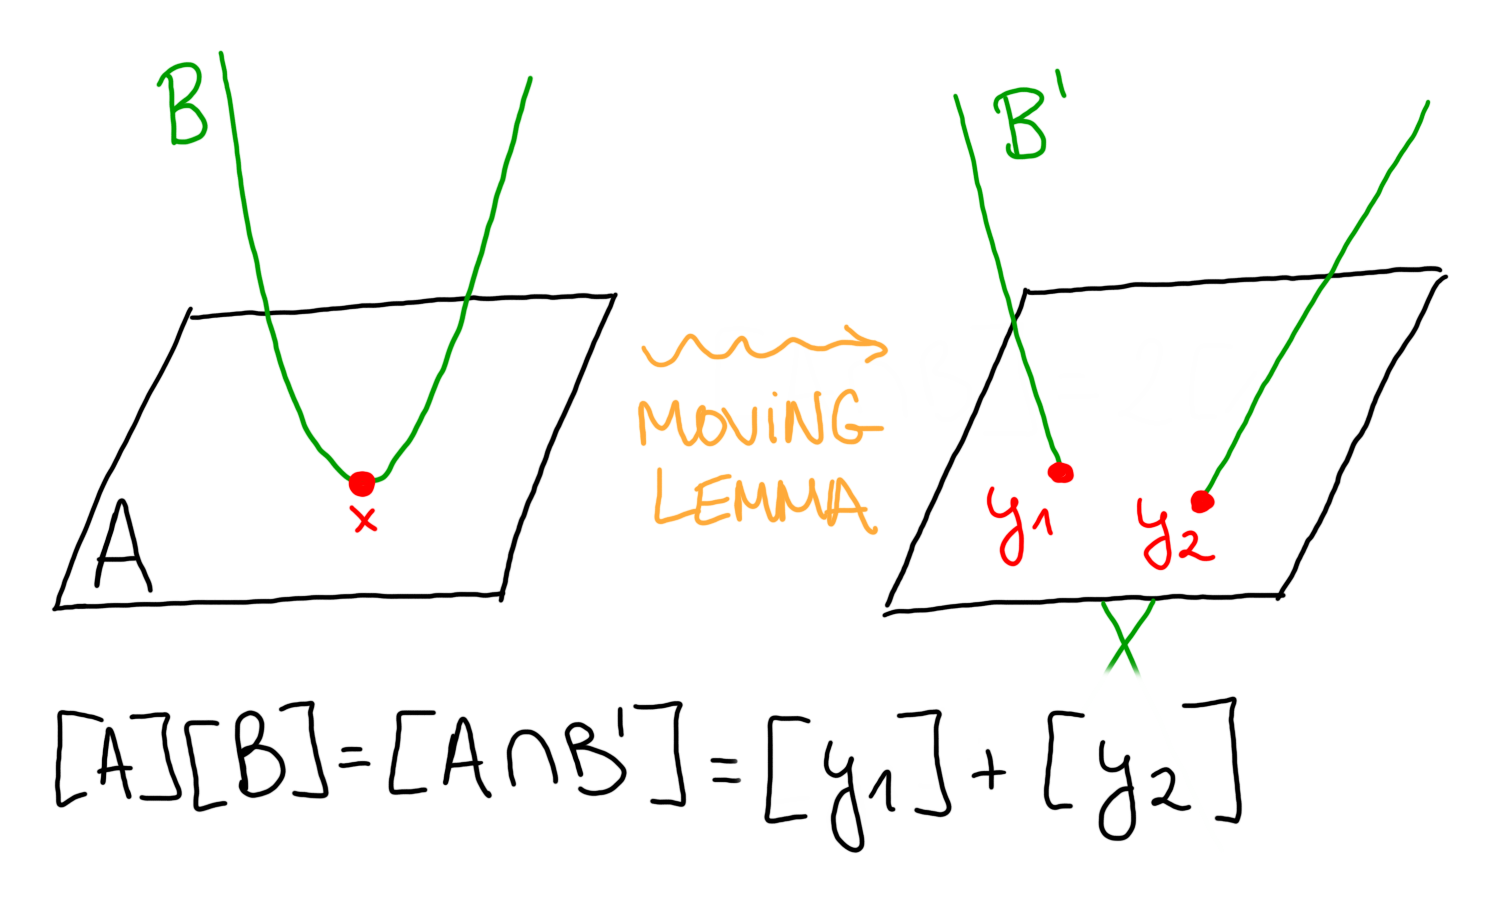 B
B'
MOViNG
LEMMA
A
x
y₁
y₂
[A][B] = [A∩B'] = [y₁] + [y₂]